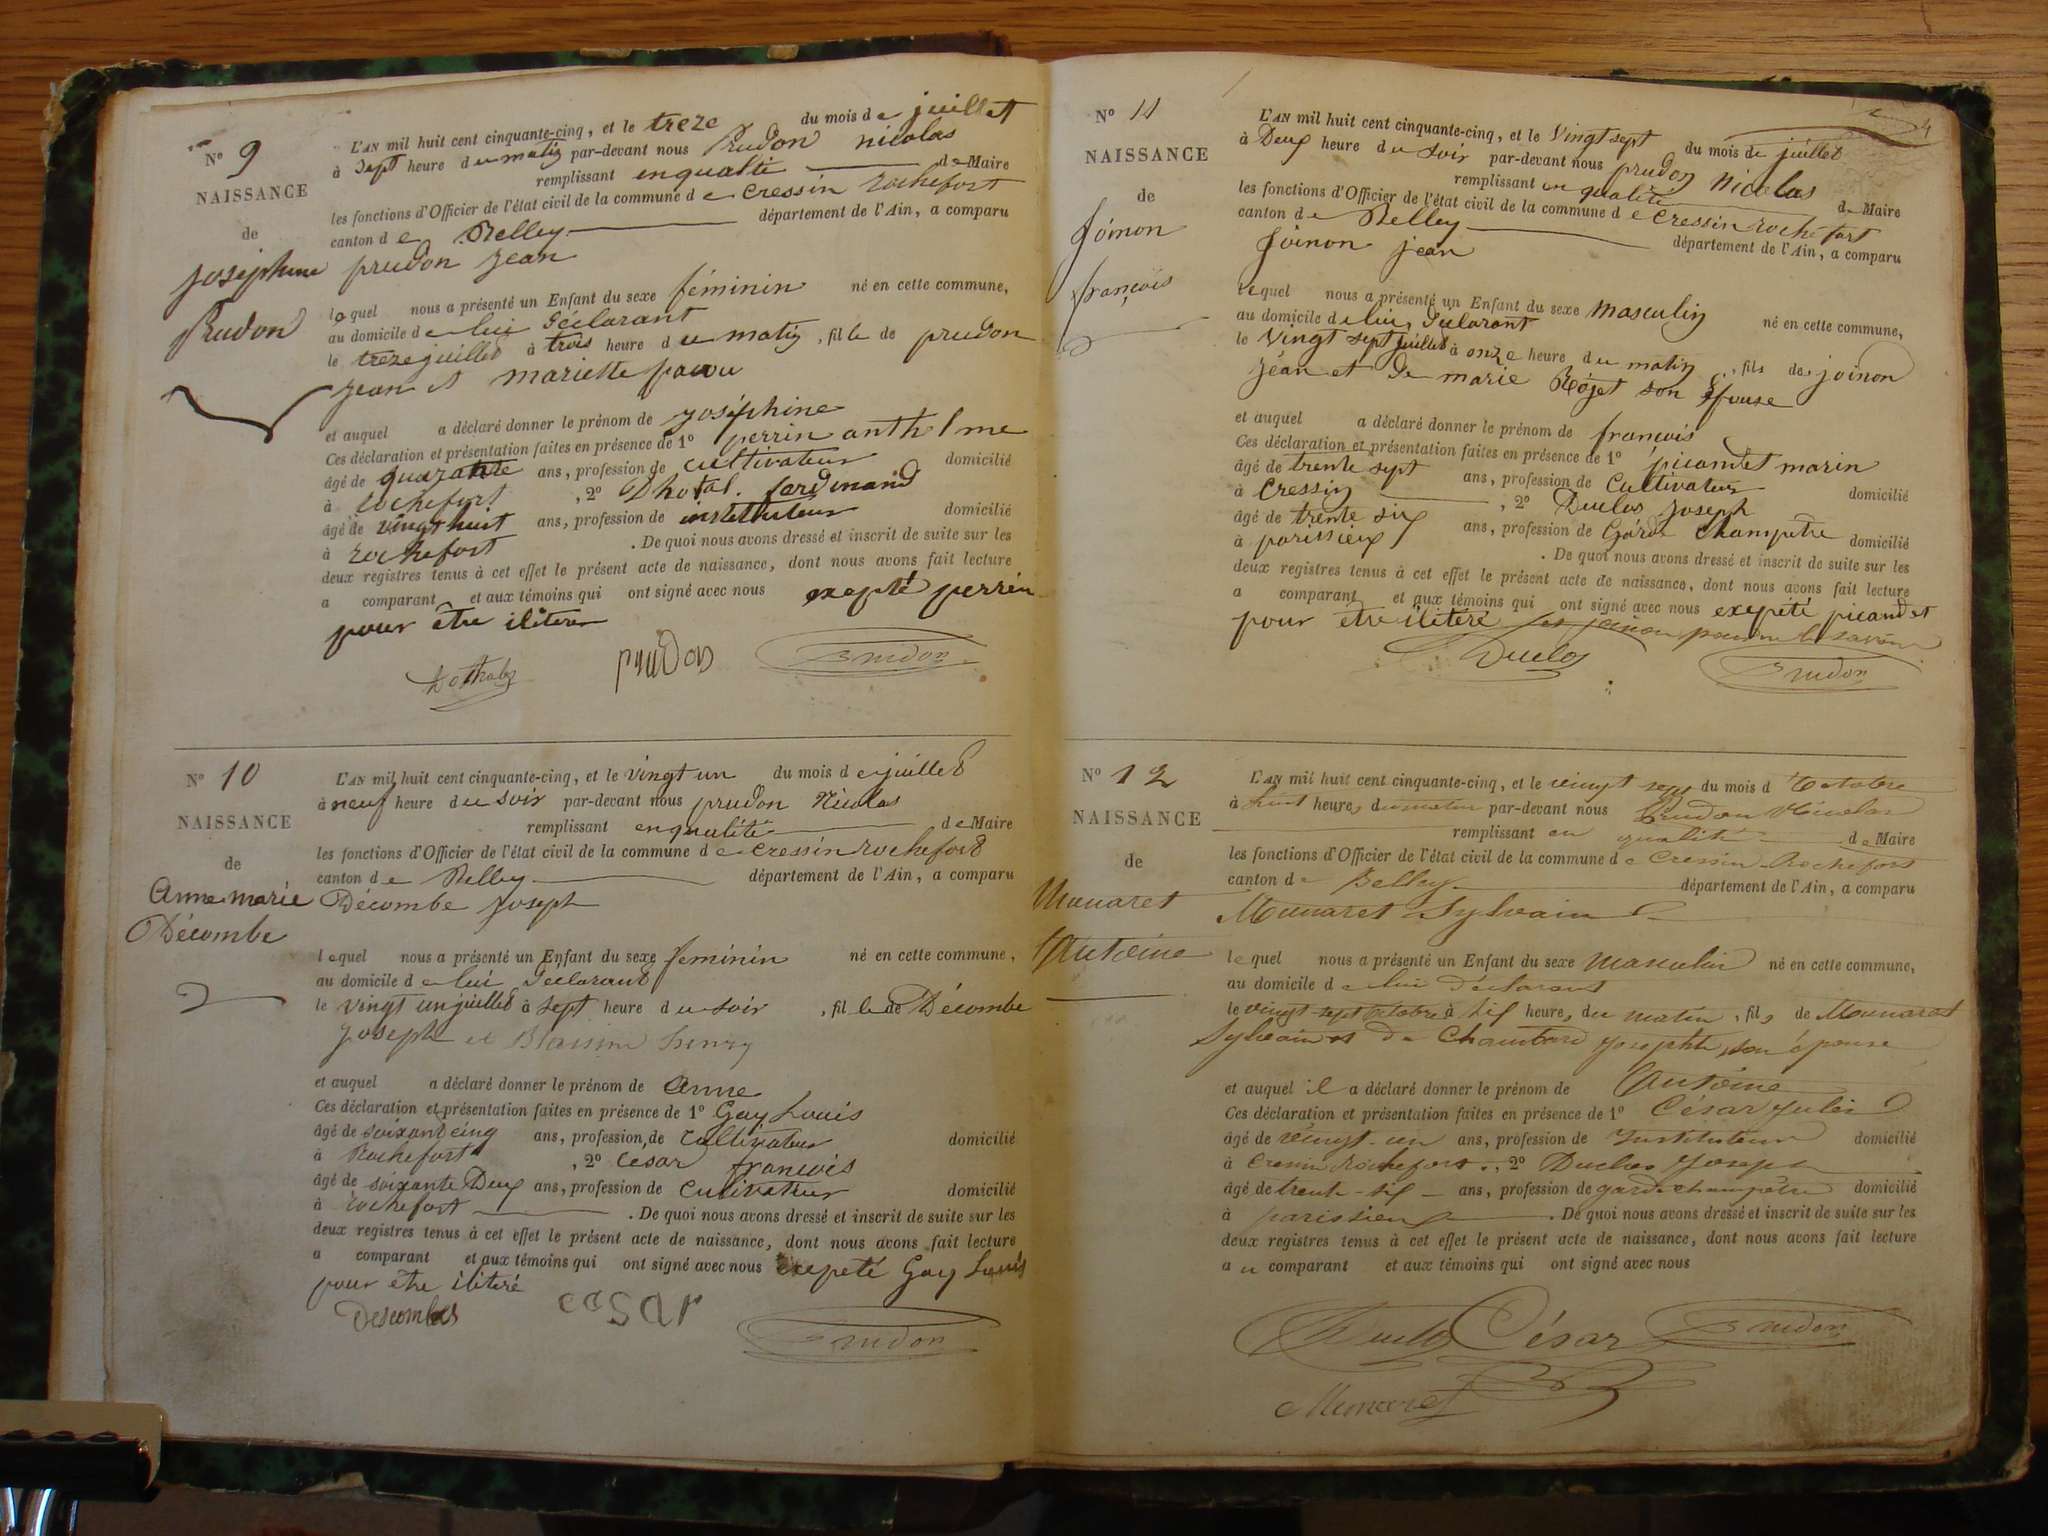 N° 9
NAISSANCE
de
Joséphine
Prudon
L'AN mil huit cent cinquante-cinq, et le treze du mois de juillet
à Sept heure du matin par-devant nous Prudon nicolas
remplissant enqualté de Maire
les fonctions d'Officier de l'état civil de la commune de Cressin rochefort
canton de Belley département de l'Ain, a comparu
prudon jean
lequel nous a présenté un Enfant du sexe féminin né en cette commune,
au domicile de lui déclarant
le treze juillet à trois heure du matin, fille de prudon
jean et mariette
et auquel a déclaré donner le prénom de joséphine
Ces déclaration et présentation faites en présence de 1° perrin anthelme
âgé de quarante ans, profession de cultivateur domicilié
à rochefort, 2° Dhotal. ferdinand
âgé de vingt huit ans, profession de instituteur domicilié
à rochefort. De quoi nous avons dressé et inscrit de suite sur les
deux registres tenus à cet effet le présent acte de naissance, dont nous avons fait lecture
a comparant et aux témoins qui ont signé avec nous exepté perrin
pour être iliterer
prudon Prudon
N° 10
NAISSANCE
de
Anne marie
Décombe
L'AN mil huit cent cinquante-cinq, et le vingt un du mois de juillet
à neuf heure du soir par-devant nous prudon Nicolas
remplissant enqualité de Maire
les fonctions d'Officier de l'état civil de la commune de cressin rochefort
canton de Belley département de l'Ain, a comparu
Décombe joseph
lequel nous a présenté un Enfant du sexe feminin né en cette commune,
au domicile de lui déclarant
le vingt un juillet à sept heure du soir, fille de Décombe
joseph et henry
et auquel a déclaré donner le prénom de Anne
Ces déclaration et présentation faites en présence de 1° Gay Louis
âgé de soixant cinq ans, profession de cultivateur domicilié
à Rochefort, 2° cesar francois
âgé de soixante Deux ans, profession de cultivateur domicilié
à rochefort. De quoi nous avons dressé et inscrit de suite sur les
deux registres tenus à cet effet le présent acte de naissance, dont nous avons fait lecture
a comparant et aux témoins qui ont signé avec nous exepeté Gay Louis
pour être ilitéré
Descombes Prudon
N° 11
NAISSANCE
de
Joinon
françois
L'AN mil huit cent cinquante-cinq, et le Vingt sept du mois de juillet
à Deux heure du soir par-devant nous prudon Nicolas
remplissant en qualité de Maire
les fonctions d'Officier de l'état civil de la commune de Cressin rochefort
canton de Belley département de l'Ain, a comparu
Joinon jean
lequel nous a présenté un Enfant du sexe masculin né en cette commune,
au domicile de lui, déclarant
le Vingt sept juillet à onze heure du matin, fils de joinon
jean et de marie Rojet son épouse
et auquel a déclaré donner le prénom de françois
Ces déclaration et présentation faites en présence de 1° picandet marin
âgé de trente sept ans, profession de Cultivateur domicilié
à Cressin, 2° Duclos joseph
âgé de trente six ans, profession de Gârde Champêtre domicilié
à parissieux. De quoi nous avons dressé et inscrit de suite sur les
deux registres tenus à cet effet le présent acte de naissance, dont nous avons fait lecture
a comparant et aux témoins qui ont signé avec nous exepété picandet
pour être ilitéré et joinon pour ne le savoir
Duclos Prudon
N° 12
NAISSANCE
de
Munaret
Antoine
L'AN mil huit cent cinquante-cinq, et le vingt sept du mois d'Octobre
à huit heures du matin par-devant nous Prudon Nicolas
remplissant en qualité de Maire
les fonctions d'Officier de l'état civil de la commune de Cressin-Rochefort
canton de Belley département de l'Ain, a comparu
Munaret Sylvain
lequel nous a présenté un Enfant du sexe Masculin né en cette commune,
au domicile de lui déclarant
le vingt-sept Octobre à six heures du matin, fils de Munaret
Sylvain et de Josephte, son épouse
et auquel il a déclaré donner le prénom de Antoine
Ces déclaration et présentation faites en présence de 1° César Julien
âgé de vingt-un ans, profession de Instituteur domicilié
à Cressin Rochefort, 2° Duclos Joseph
âgé de trente-six ans, profession de garde champêtre domicilié
à parissieux. De quoi nous avons dressé et inscrit de suite sur les
deux registres tenus à cet effet le présent acte de naissance, dont nous avons fait lecture
au comparant et aux témoins qui ont signé avec nous
Duclos César Prudon
Munaret